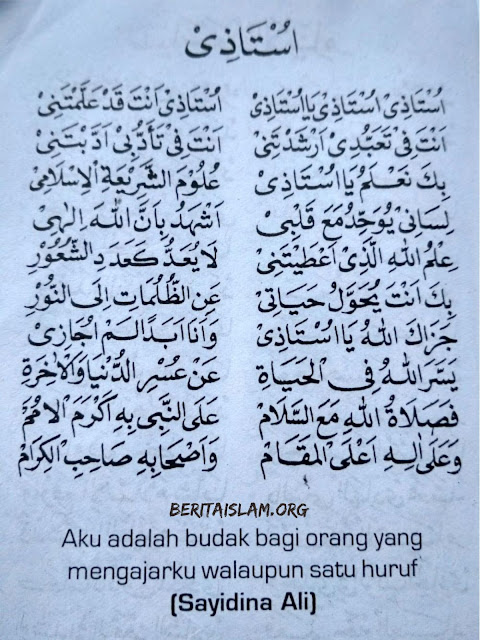 اُسْتَاذِىْ
اُسْتَاذِىْ اُسْتَاذِىْ يَا اُسْتَاذِىْ اُسْتَاذِىْ اَنْتَ قَدْ عَلَّمْتَنِىْ
اَنْتَ فِىْ تَعَبُّدِىْ اَرْشَدْتَنِىْ اَنْتَ فِىْ تَأَدُّبِىْ اَدَّبْتَنِىْ
بِكَ نَعْلَمُ يَا اُسْتَاذِىْ عُلُوْمَ الشَّرِيْعَةِ الْاِسْلَامِىْ
لِسَانِىْ يُوَحِّدُ مَعَ قَلْبِىْ اَشْهَدُ بِاَنَّ اللّٰهَ اِلٰهِىْ
عِلْمُ اللّٰهِ الَّذِىْ اَعْطَيْتَنِىْ لَا يُعَدُّ كَعَدَدِ الشُّعُوْرْ
بِكَ اَنْتَ يُحَوَّلُ حَيَاتِىْ عَنِ الظُّلُمَاتِ اِلَى النُّوْرْ
جَزَاكَ اللّٰهُ يَا اُسْتَاذِىْ وَاَنَا اَبَدًا لَمْ اُجَازِىْ
يَسَّرَ اللّٰهُ فِى الْحَيَاةِ عَنْ عُسْرِ الدُّنْيَا وَالْاٰخِرَةِ
فَصَلَاةُ اللّٰهِ مَعَ السَّلَامْ عَلَى النَّبِى بِهِ اَكْرَمَ الْاُمَمْ
وَعَلٰى اٰلِهِ اَعْلَى الْمَقَامْ وَاَصْحَابِهِ صَاحِبِ الْكِرَامْ
BERITAISLAM.ORG
Aku adalah budak bagi orang yang
mengajarku walaupun satu huruf
(Sayidina Ali)